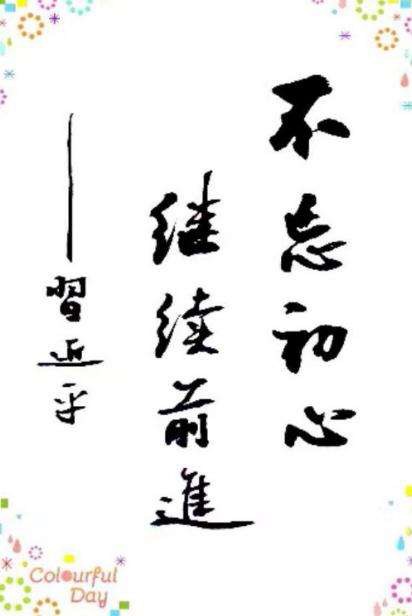 不忘初心
继续前進
——習近平
Colourful
Day